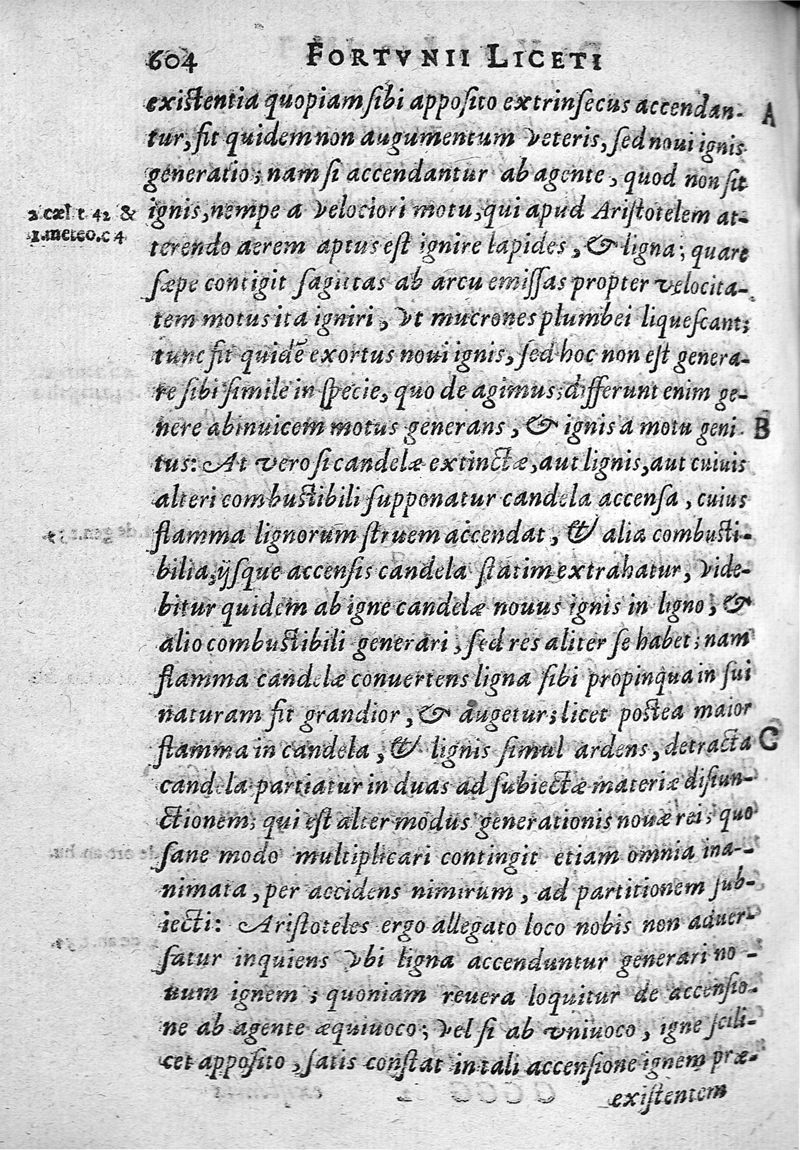 604 FORTVNII LICETI
existentia quopiam sibi apposito extrinsecus accendan- A
tur, fit quidem non augumentum veteris, sed noui ignis
generatio; nam si accendantur ab agente, quod non sit
2. cæl. t. 42 & ignis, nempe a velociori motu, qui apud Aristotelem at-
1. meteo. c 4 terendo aerem aptus est ignire lapides, & ligna; quare
sæpe contigit sagittas ab arcu emissas propter velocita-
tem motus ita igniri, vt mucrones plumbei liquescant;
tunc fit quidẽ exortus noui ignis, sed hoc non est genera-
re sibi simile in specie, quo de agimus; differunt enim ge-
nere abinuicem motus generans, & ignis a motu geni B
tus: At vero si candelæ extinctæ, aut lignis, aut cuiuis
alteri combustibili supponatur candela accensa, cuius
flamma lignorum struem accendat, & alia combusti-
bilia, ijsque accensis candela statim extrahatur, vide-
bitur quidem ab igne candelæ nouus ignis in ligno, &
alio combustibili generari, sed res aliter se habet; nam
flamma candelæ conuertens ligna sibi propinqua in sui
naturam fit grandior, & augetur; licet postea maior
flamma in candela, & lignis simul ardens, detracta C
candela partiatur in duas ad subiectæ materiæ disiun-
ctionem; qui est alter modus generationis nouæ rei, quo
sane modo multiplicari contingit etiam omnia ina-
nimata, per accidens nimirum, ad partitionem sub-
iecti: Aristoteles ergo allegato loco nobis non aduer-
satur inquiens vbi ligna accenduntur generari no-
uum ignem; quoniam reuera loquitur de accensio-
ne ab agente æquiuoco; vel si ab vniuoco, igne scili-
cet apposito, satis constat in tali accensione ignem præ-
existentem